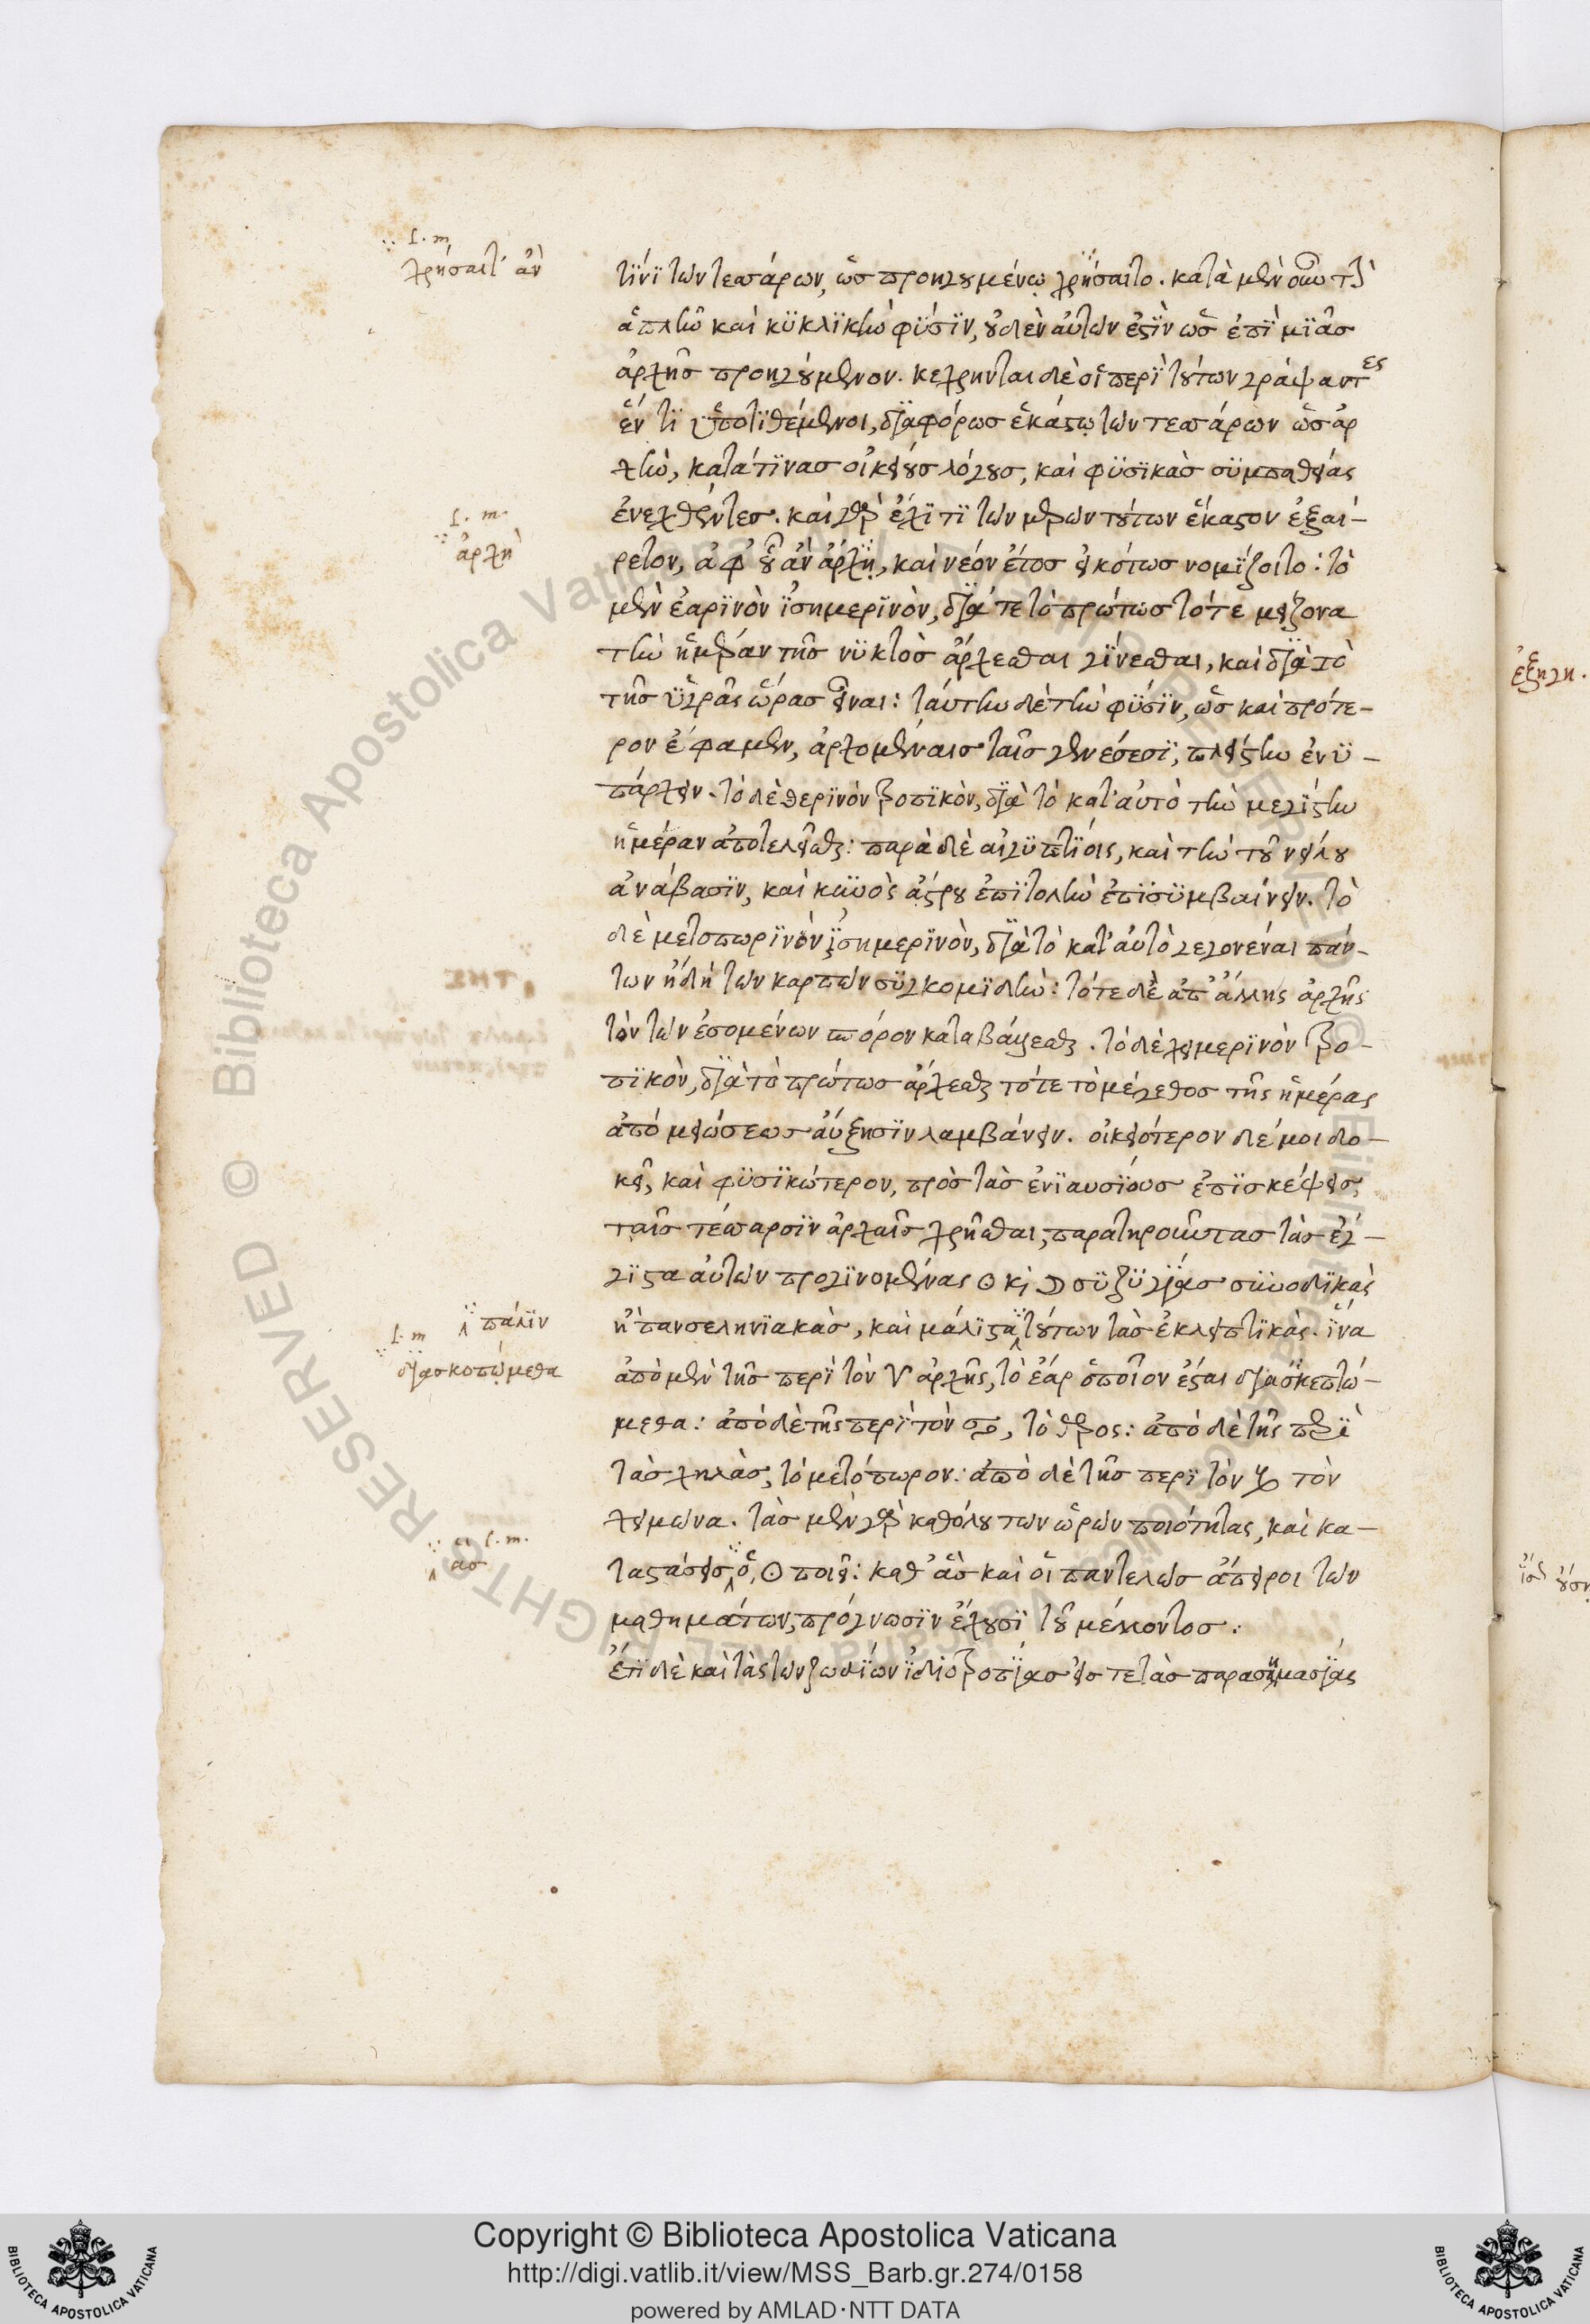 ſ. m.
χρήσαιτ' ἂν
τϊνὶ τῶν τεσσάρων, ὡς προηγουμένῳ χρήσαιτο. κατὰ μὲν οὖν τὴν
ἁπλῆν καὶ κϋκλϊκὴν φϋσϊν, οὐδὲν αὐτῶν ἐστϊν ὡς ἐπῒ μϊᾶς
ἀρχῆς προηγούμενον. κέχρηνται δὲ οἱ περῒ τούτων γράψαντες
ἕν τϊ ὑποτϊθέμενοι, δϊαφόρως ἑκάστῳ τῶν τεσσάρων ὡς ἀρ
χῇ, κατά τϊνας οἰκείους λόγους, καὶ φϋσϊκὰς σϋμπαθείας
ἐνεχθέντες. καὶ γὰρ ἔχϊ τϊ τῶν μερῶν τούτων ἕκαστον ἐξαί-
ſ. m.
ἀρχὴ
ρετον, ἀφ' οὗ ἂν ἀρχῇ, καὶ νέον ἔτος εἰκότως νομϊζοιτο: τὸ
μὲν ἐαρϊνὸν ϊσημερϊνὸν, δϊά τε τὸ πρώτως τότε μείζονα
τὴν ἡμέραν τῆς νϋκτὸς ἄρχεσθαι γϊνεσθαι, καὶ δϊὰ τὸ
τῆς ϋγρᾶς ὥρας εἶναι: ταύτην δὲ τὴν φϋσϊν, ὡς καὶ πρότε-
ρον ἔφαμεν, ἀρχομέναις ταῖς γενέσεσϊ, πλείστην ἐνϋ-
πάρχειν. τὸ δὲ θερϊνὸν τροπϊκὸν, δϊὰ τὸ κατ' αὐτὸ τὴν μεγϊστην
ἡμέραν ἀποτελεῖσθαι: παρὰ δὲ αἰγϋπτϊοις, καὶ τὴν τοῦ νείλου
ἀνάβασϊν, καὶ κϋνὸς ἄστρου ἐπϊτολὴν ἐπϊσϋμβαίνειν. τὸ
δὲ μετοπωρϊνὸν ϊσημερϊνὸν, δϊὰ τὸ κατ' αὐτὸ γεγονέναι πάν-
των ἤδη τῶν καρπῶν σϋγκομϊδὴν: τότε δὲ ἀπ' ἄλλης ἀρχῆς
τὸν τῶν ἐσομένων πόρον καταβάλλεσθαι. τὸ δὲ χειμερϊνὸν τρο-
πϊκὸν, δϊὰ τὸ πρώτως ἄρχεσθαι τότε τὸ μέγεθος τῆς ἡμέρας
ἀπὸ μειώσεως αὔξησϊν λαμβάνειν. οἰκειότερον δέ μοι δο-
κεῖ, καὶ φϋσϊκώτερον, πρὸς τὰς ἐνϊαυσϊους ἐπϊσκέψεις,
ταῖς τέσσαρσϊν ἀρχαῖς χρῆσθαι, παρατηροῦντας τὰς ἔγ-
γϊστα αὐτῶν προγϊνομένας ☉ κὶ ☽ σϋζϋγϊας σϋνοδϊκὰς
πάλϊν
ἢ πανσεληνϊακὰς, καὶ μάλϊστα τούτων τὰς ἐκλειπτϊκὰς. ϊνα
ſ. m
δϊασκοπώμεθα
ἀπὸ μὲν τῆς περῒ τὸν ♈ ἀρχῆς, τὸ ἔαρ ὁποῖον ἔσται δϊασκεπτώ-
μεθα: ἀπὸ δὲ τῆς περῒ τὸν ♋, τὸ θέρος: ἀπὸ δὲ τῆς περῒ
τὰς χηλὰς, τὸ μετόπωρον: ἀπὸ δὲ τῆς περϊ τὸν ♑ τὸν
χειμῶνα. τὰς μὲν γὰρ καθόλου τῶν ὡρῶν ποιότητας, καὶ κα-
ſ. m.
ας
ταστάσεις, ὁ ☉ ποιεῖ: καθ' ἃς καὶ οἱ παντελῶς ἄπειροι τῶν
μαθημάτων, πρόγνωσϊν ἔχουσϊ τοῦ μέλλοντος.
ἔτϊ δὲ καὶ τὰς τῶν ζωδϊων ϊδϊοτροπϊας εἴς τε τὰς παρασημασϊας
ἐξηγη.